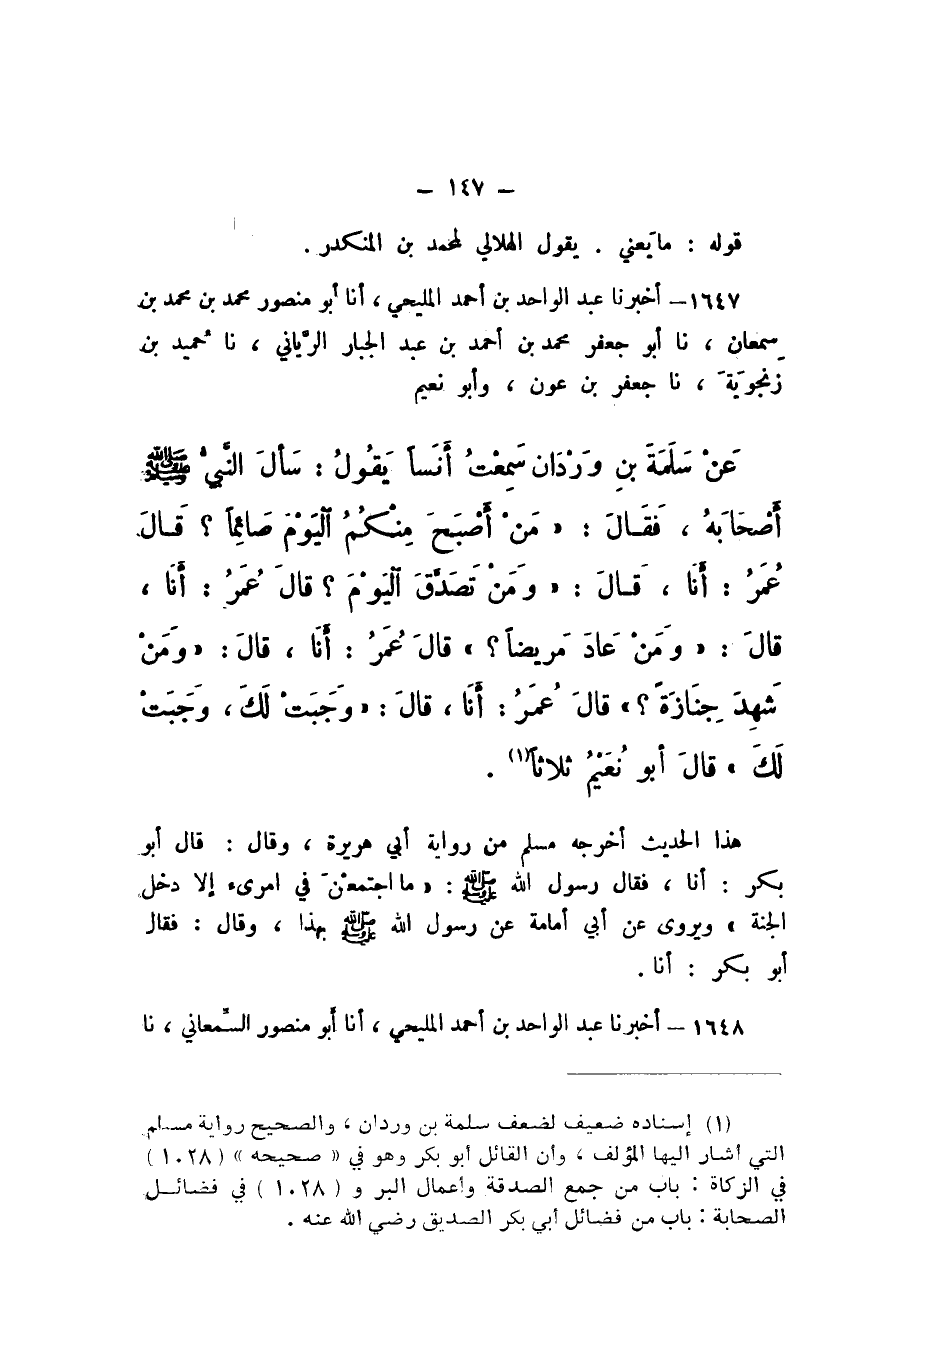 – ١٤٧ –
قوله : ما يَعني . يقول الهلالي لمحمد بن المنكدر .
١٦٤٧ – أخبرنا عبد الواحد بن أحمد المليحي ، أنا أبو منصور محمد بن محمد بن
سِمعان ، نا أبو جعفر محمد بن أحمد بن عبد الجبار الرَّياني ، نا حُميد بن
زنجويَةَ ، نا جعفر بن عون ، وأبو نعيم
عَنْ سَلَمَةَ بنِ وَرْدَان سَمِعْتُ أَنَساً يَقُولُ : سَأَلَ النَّبيُّ ﷺ
أَصْحَابَهُ ، فَقَالَ : « مَنْ أَصْبَحَ مِنْكُمُ ٱلْيَوْمَ صَائِماً ؟ قَالَ
عُمَرُ : أَنَا ، قَالَ : « وَمَنْ تَصَدَّقَ ٱلْيَوْمَ ؟ قَالَ عُمَرُ : أَنَا ،
قَالَ : « وَمَنْ عَادَ مَريضاً ؟ » قَالَ عُمَرُ : أَنَا ، قَالَ : « وَمَنْ
شَهِدَ جِنَازَةً ؟ » قَالَ عُمَرُ : أَنَا ، قَالَ : « وَجَبَتْ لَكَ ، وَجَبَتْ
لَكَ » قَالَ أَبو نُعَيْمُ ثلاثاً(١) .
هذا الحديث أخرجه مسلم من رواية أبي هريرة ، وقال : قال أبو
بكر : أنا ، فقال رسول الله ﷺ : « ما اجتمعْنَ في امرىء إلا دخل
الجنة » ويروى عن أبي أمامة عن رسول الله ﷺ بهذا ، وقال : فقال
أبو بكر : أنا .
١٦٤٨ – أخبرنا عبد الواحد بن أحمد المليحي ، أنا أبو منصور السَّمعاني ، نا
(١) إسناده ضعيف لضعف سلمة بن وردان ، والصحيح رواية مسلم
التي أشار اليها المؤلف ، وأن القائل أبو بكر وهو في « صحيحه » (١٠٢٨)
في الزكاة : باب من جمع الصدقة وأعمال البر و ( ١٠٢٨ ) في فضائل
الصحابة : باب من فضائل أبي بكر الصديق رضي الله عنه .